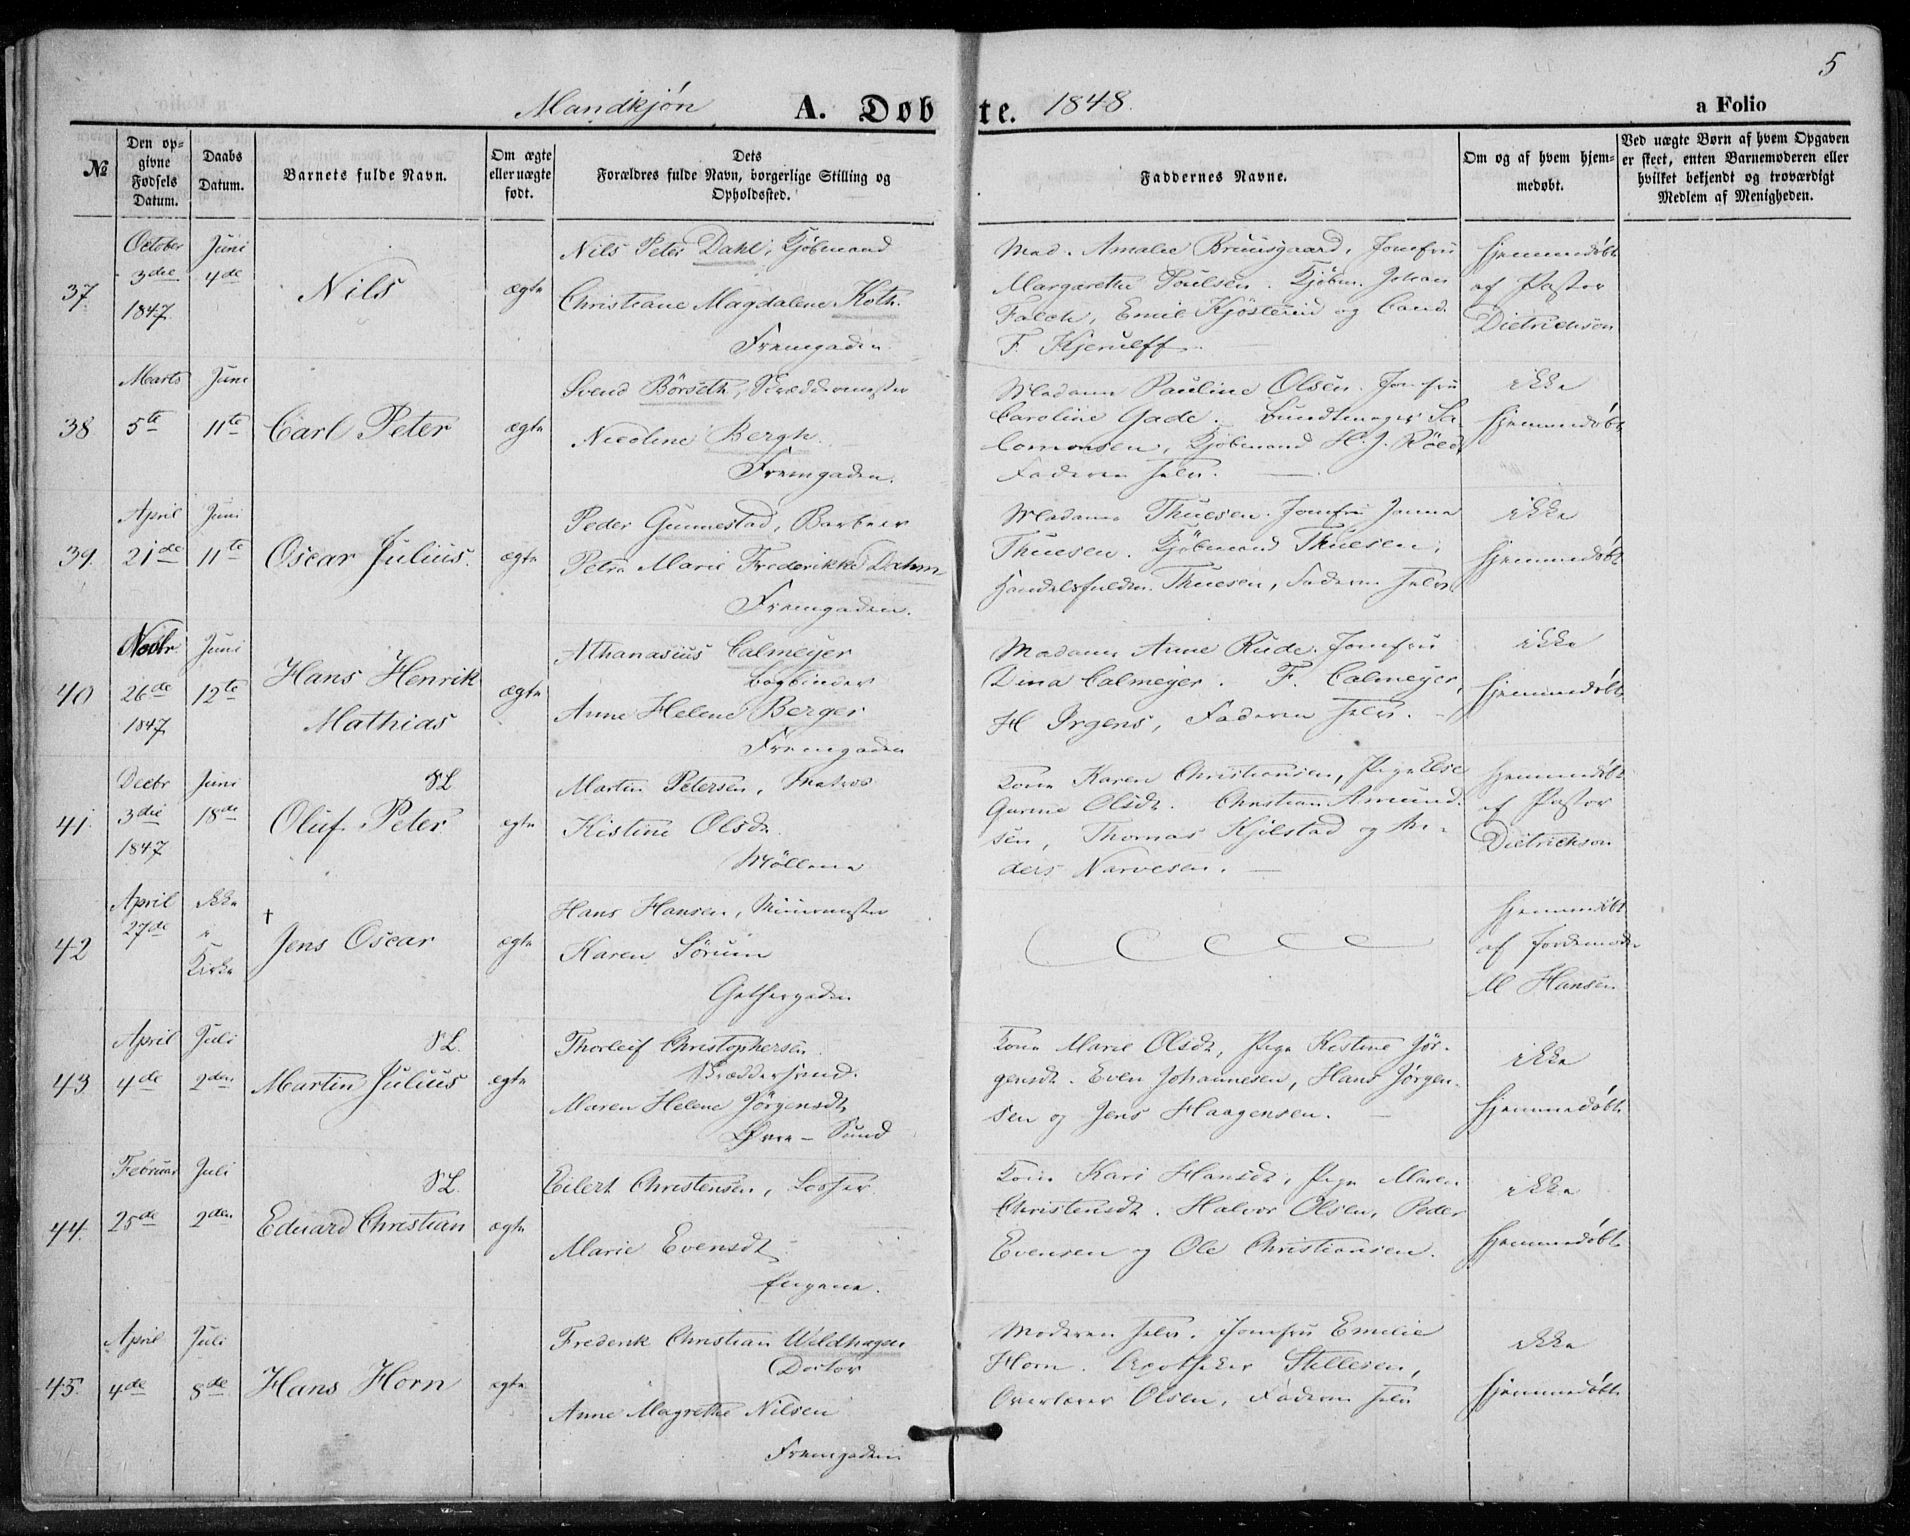 5
Mandkjøn A. Døbte. 1848. a Folio
№
Den op-
givne
Fødsels
Datum.
Daabs
Datum.
Barnets fulde Navn.
Om ægte
eller uægte
født.
Dets
Forældres fulde Navn, borgerlige Stilling og
Opholdssted.
Faddernes Navne.
Om og af hvem hjem-
medøbt.
Ved uægte Børn af hvem Opgaven
er skeet, enten Barnemoderen eller
hvilket bekjendt og troværdigt
Medlem af Menigheden.
37
October
3die
1847
Juni
4de
Nils
ægte
Nils Peter Dahl, Kjøbmand
Christiane Magdalene Koth.
Fremgaden.
Mad. Amalie Bruusgaard, Jomfru
Margarethe Poulsen. Kjøbm. Johan
Falch, Emil Kjøsterud og Cand.
F. Kjerulff.
hjemmedøbt
af Pastor
Dietrichson
38
Marts
5te
Juni
11te
Carl Peter
ægte
Svend Börseth, Skræddermester
Nicoline Bergh.
Fremgaden.
Madame Pauline Olsen. Jomfru
Caroline Gade. Bundtmager Sa-
lomonsen, Kjøbmand H. J. Röed,
Faderen selv.
ikke
hjemmedøbt
39.
April
21de
Juni
11te
Oscar Julius.
ægte
Peder Gunnestad, Barbeer
Petra Marie Frederikke Dahm
Fremgaden.
Madame Thuesen. Jomfru Janna
Thuesen. Kjøbmand Thuesen,
Handelsfuldm. Thuesen, Faderen selv
ikke
hjemmedøbt
40
Novbr
26de
1847
Juni
12te
Hans Henrik
Mathias
ægte
Athanasius Calmeyer
Bogbinder
Anne Helene Berger
Fremgaden
Madame Anne Rude. Jomfru
Dina Calmeyer. F. Calmeyer,
H Irgens, Faderen selv.
ikke
hjemmedøbt
41.
Decbr
3die
1847
Juni
18de
SL
Oluf Peter
ægte
Martin Petersen, Matros
Kistine Olsdt.
Möllene
Kone Karen Christiansen, Pige Else
Gurine Olsdt. Christian Amund-
sen, Thomas Kjilstad og An-
ders Narvesen.
hjemmedøbt
af Pastor
Dietrichson
42
April
27de
ikke
i
Kirke
†
Jens Oscar
ægte
Hans Hansen, Muurmester
Karen Sörum
Gethergaden
hjemmedøbt
af Jordemoder
M Hansen
43
April
4de
Juli
2den
SL.
Martin Julius
ægte
Thorleif Christophersen
Skræddersvend.
Maren Helene Jörgensdt,
Øvre-Sund
Kone Marie Olsdt, Pige Kistine Jör-
gensdt. Even Johannesen, Hans Jörgen-
sen og Jens Haagensen.
ikke
hjemmedøbt
44.
Februar
25de
Juli
2den
SL.
Eduard Christian
ægte
Eilert Christensen, Losser
Marie Evensdt
Engene.
Kone Kari Hansdt, Pige Maren
Christensdt. Halvor Olsen, Peder
Evensen og Ole Christiansen.
ikke
hjemmedøbt
45.
April
4de
Juli
8de
Hans Horn
ægte
Frederik Christian Weldhagen
Doctor
Anne Magrethe Nilsen
Fremgaden
Moderen selv. Jomfru Emilie
Horn. Apotheker Stillesen,
Overlærer Olsen, Faderen selv
ikke
hjemmedøbt